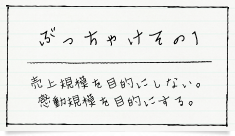 ぶっちゃけその1
売上規模を目的にしない。
感動規模を目的にする。